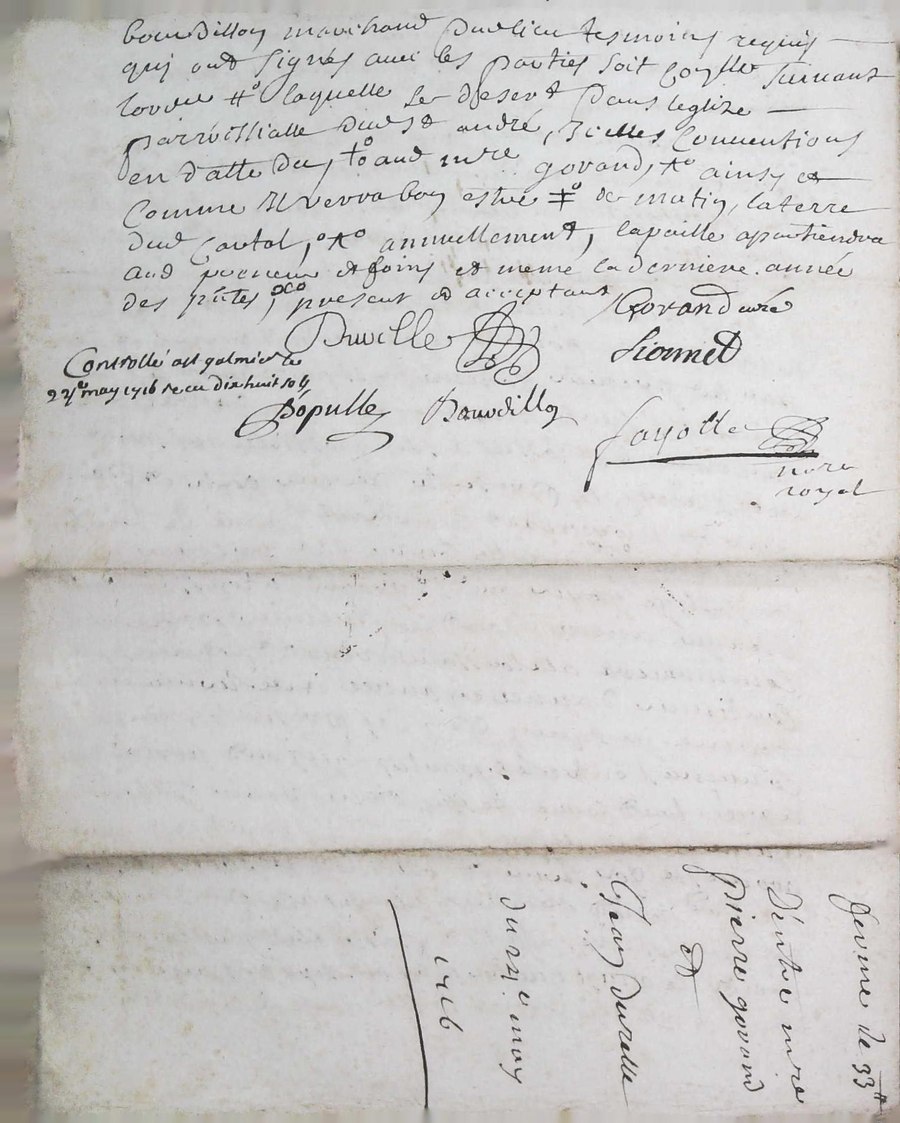 bourdillon marchand dud lieu tesmoins requis
qui ont signes avec les parties soit suivant
lordre #° laquelle se desert dans leglize
parroissialle dud St andré, Icelles Conventions
en datte du, ‡° aud mre govand, ‡° ainsy et
Comme Il verra bon estre ‡° de matin, la terre
dud Cartal, °‡° annuellement, la paille apartiendra
aud preneur et foins et meme la derniere année
des pntes, present et acceptant
Govand curé
Duville
Sionnet
Controllé a st galmier le
24e may 1716 receu dix huit sols
Populle
Bourdillon
fayolle
nore
royal
ferme de 33#
D'entre mre
pierre govand
et
Jean durelle
du 24e may
1716